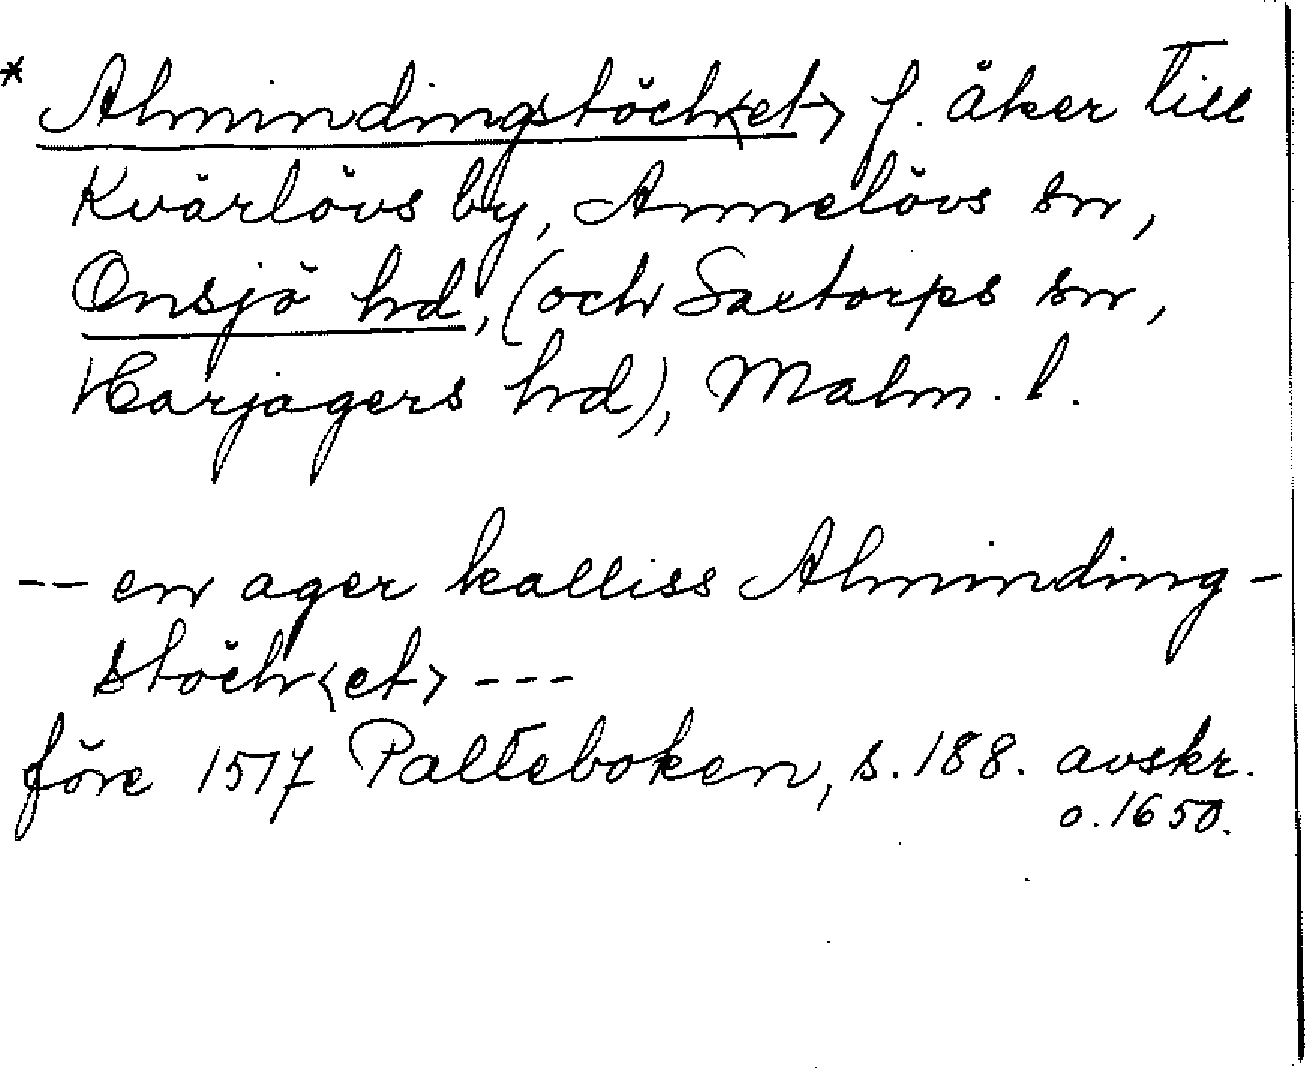 * Almindingstöck<et> f. åker till
Kvärlövs by, Annelövs sn,
Onsjö hd, (och Saxtorps sn,
Harjagers hd), Malm. l.
-- en ager kalliss Alminding-
stöck<et> ---
före 1517 Palteboken, s. 188. avskr.
o. 1650.